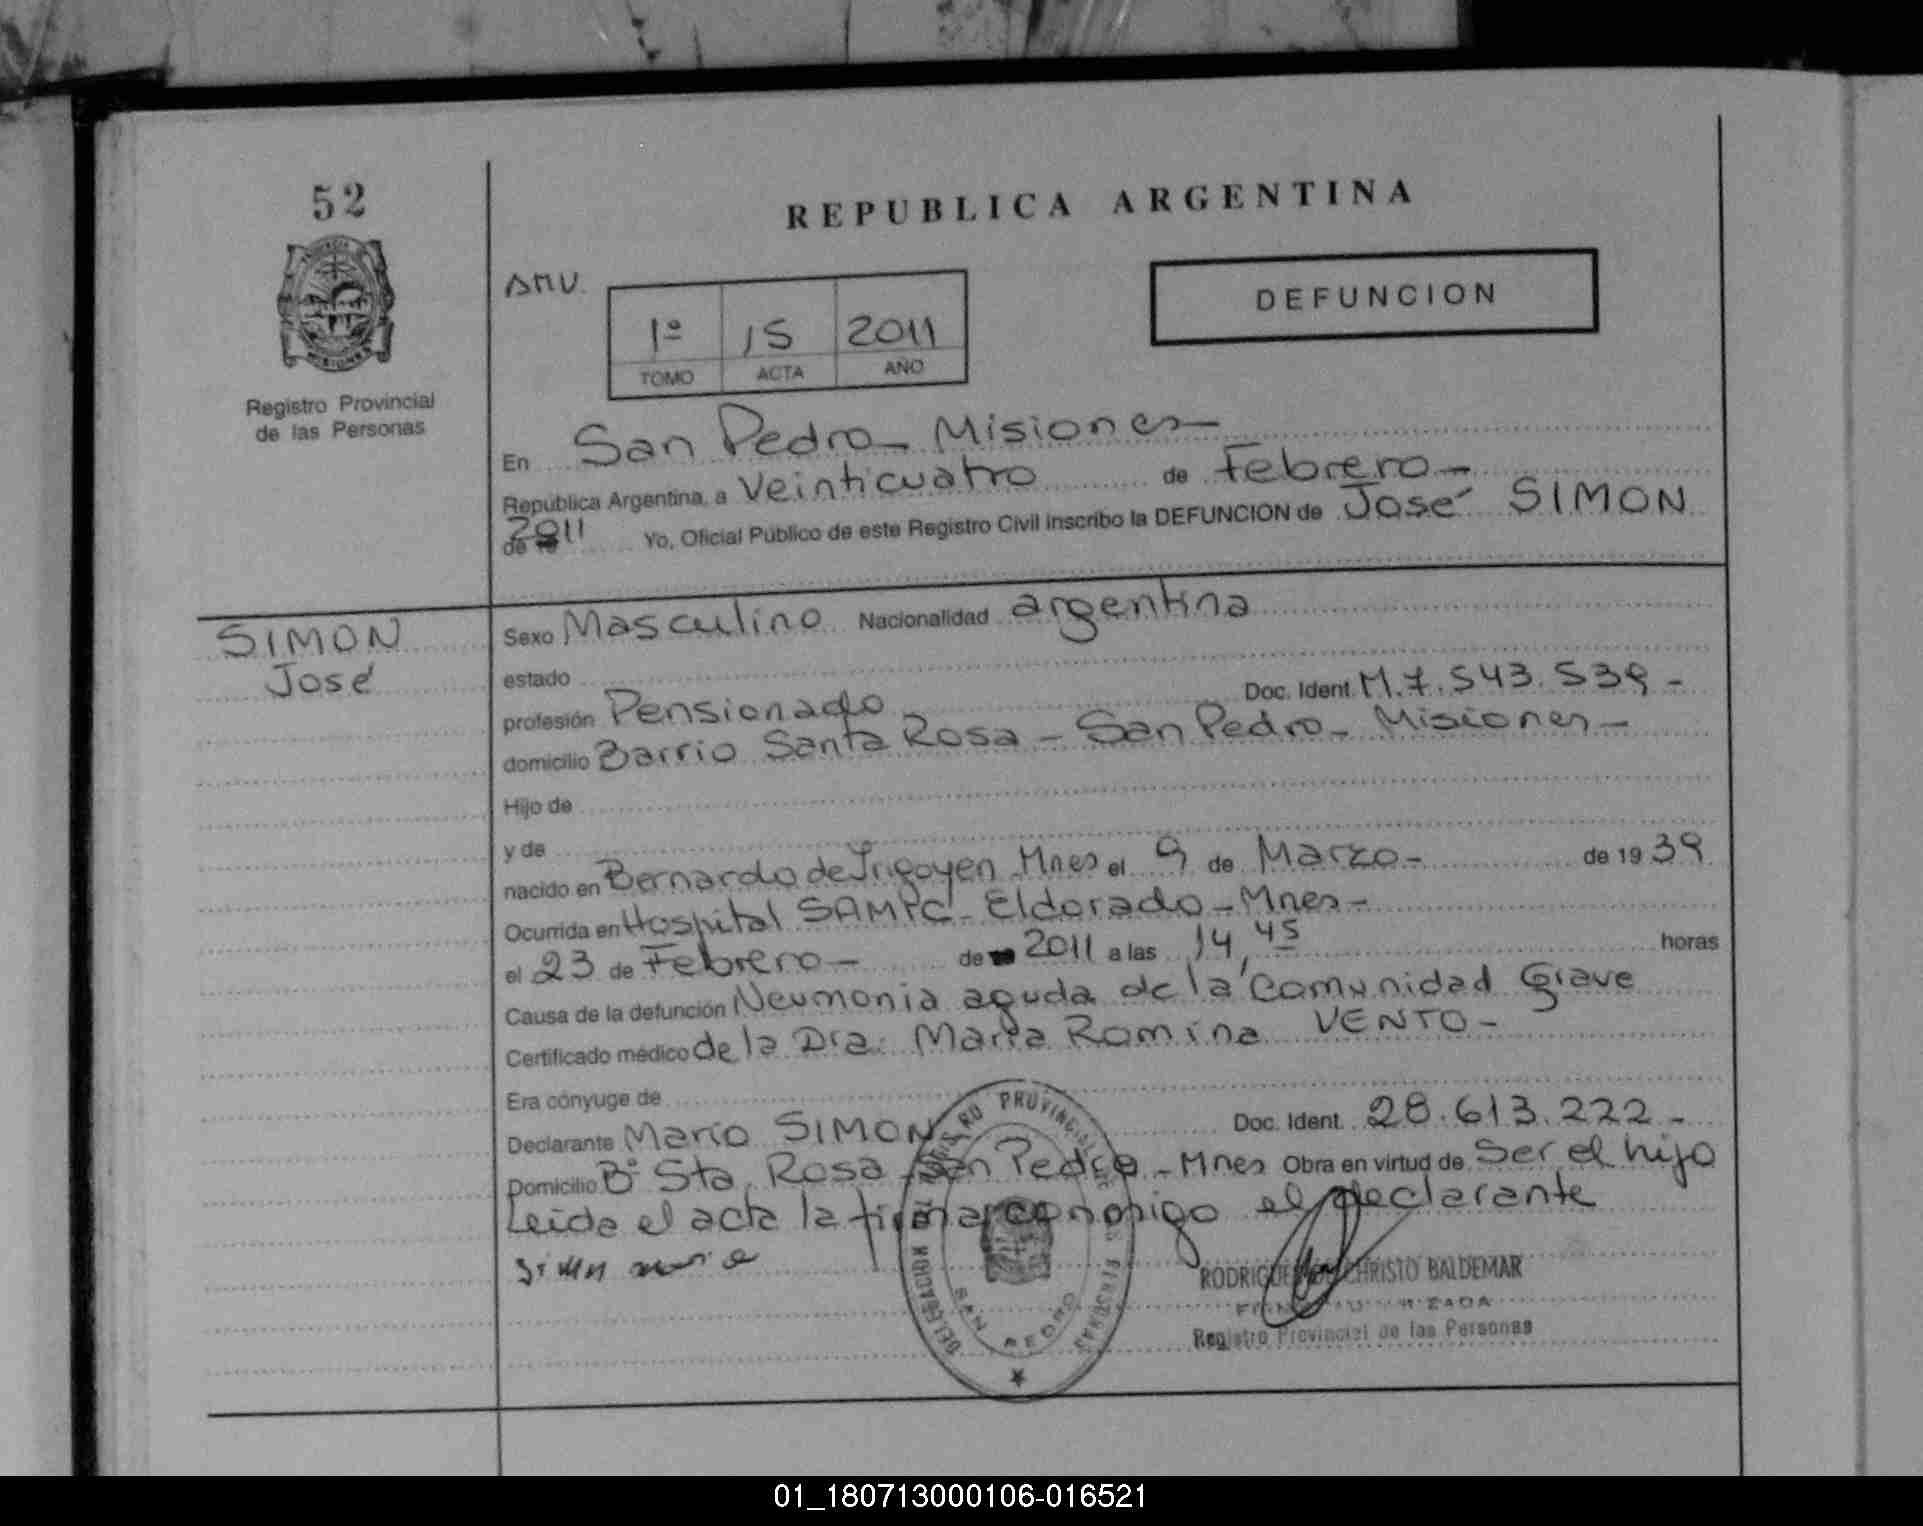 52
REPUBLICA ARGENTINA
DEFUNCION
1º 15 2011
TOMO ACTA AÑO
Registro Provincial
de las Personas
En San Pedro - Misiones -
República Argentina, a Veinticuatro de Febrero -
de 2011 Yo, Oficial Público de este Registro Civil inscribo la DEFUNCION de José SIMON
SIMON
José
Sexo Masculino Nacionalidad argentina
estado
profesión Pensionado Doc. Ident. M.7.543.539 -
domicilio Barrio Santa Rosa - San Pedro - Misiones -
Hijo de
y de
nacido en Bernardo de Irigoyen Mnes el 9 de Marzo - de 1939
Ocurrida en Hospital SAMIC - Eldorado - Mnes -
el 23 de Febrero - de 2011 a las 14,45 horas
Causa de la defunción Neumonia aguda de la Comunidad Grave
Certificado médico de la Dra. Maria Romina VENTO -
Era cónyuge de
Declarante Mario SIMON Doc. Ident. 28.613.222 -
Domicilio Bº Sta. Rosa - San Pedro - Mnes Obra en virtud de Ser el hijo
Leida el acta la firma conmigo el declarante
Simon
CHRISTO BALDEMAR
Registro Provincial de las Personas
PROVINCIAL DE LAS PERSONAS
DELEGACION
SAN PEDRO
MISIONES
01_180713000106-016521